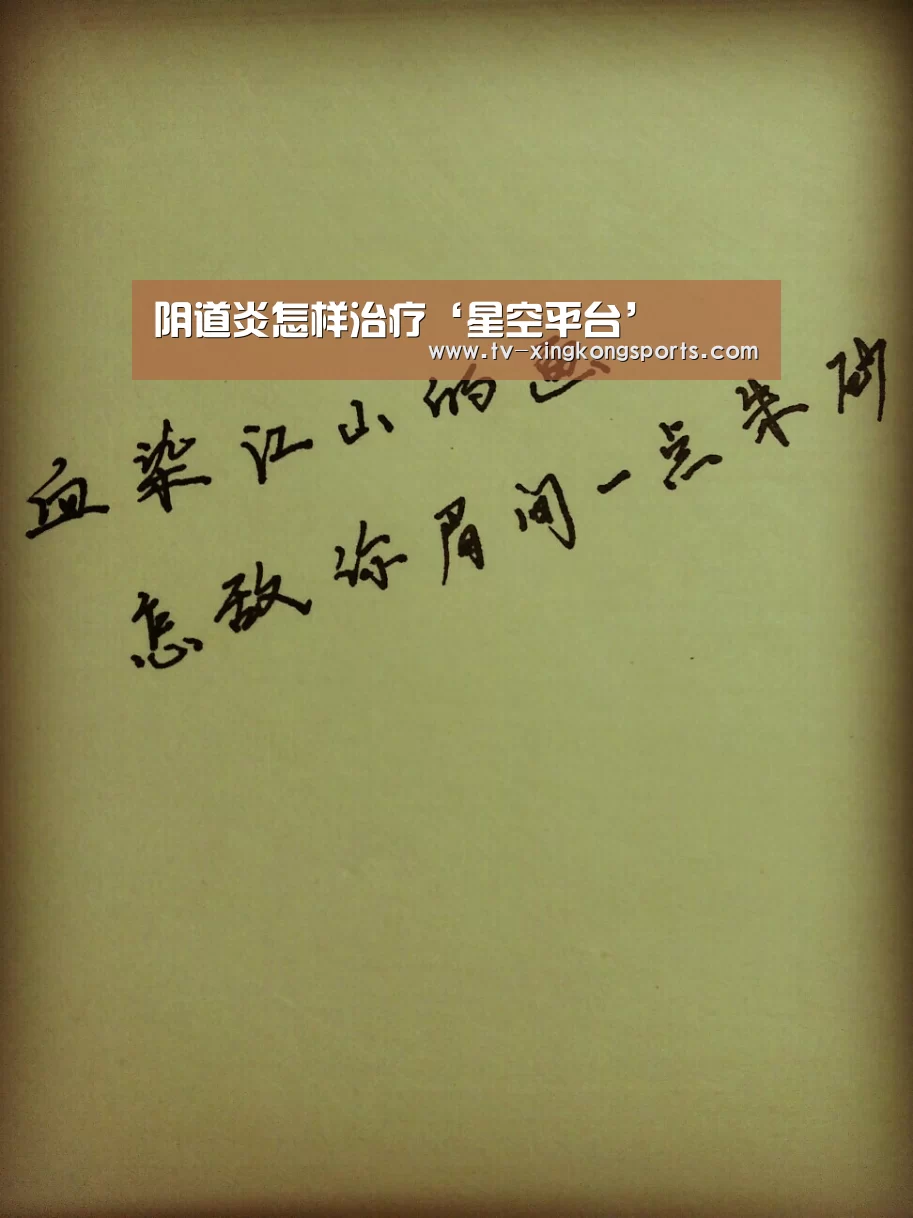 阴道炎怎样治疗‘星空平台’
www.tv-xingkongsports.com
血染江山的画
怎敌你眉间一点朱砂